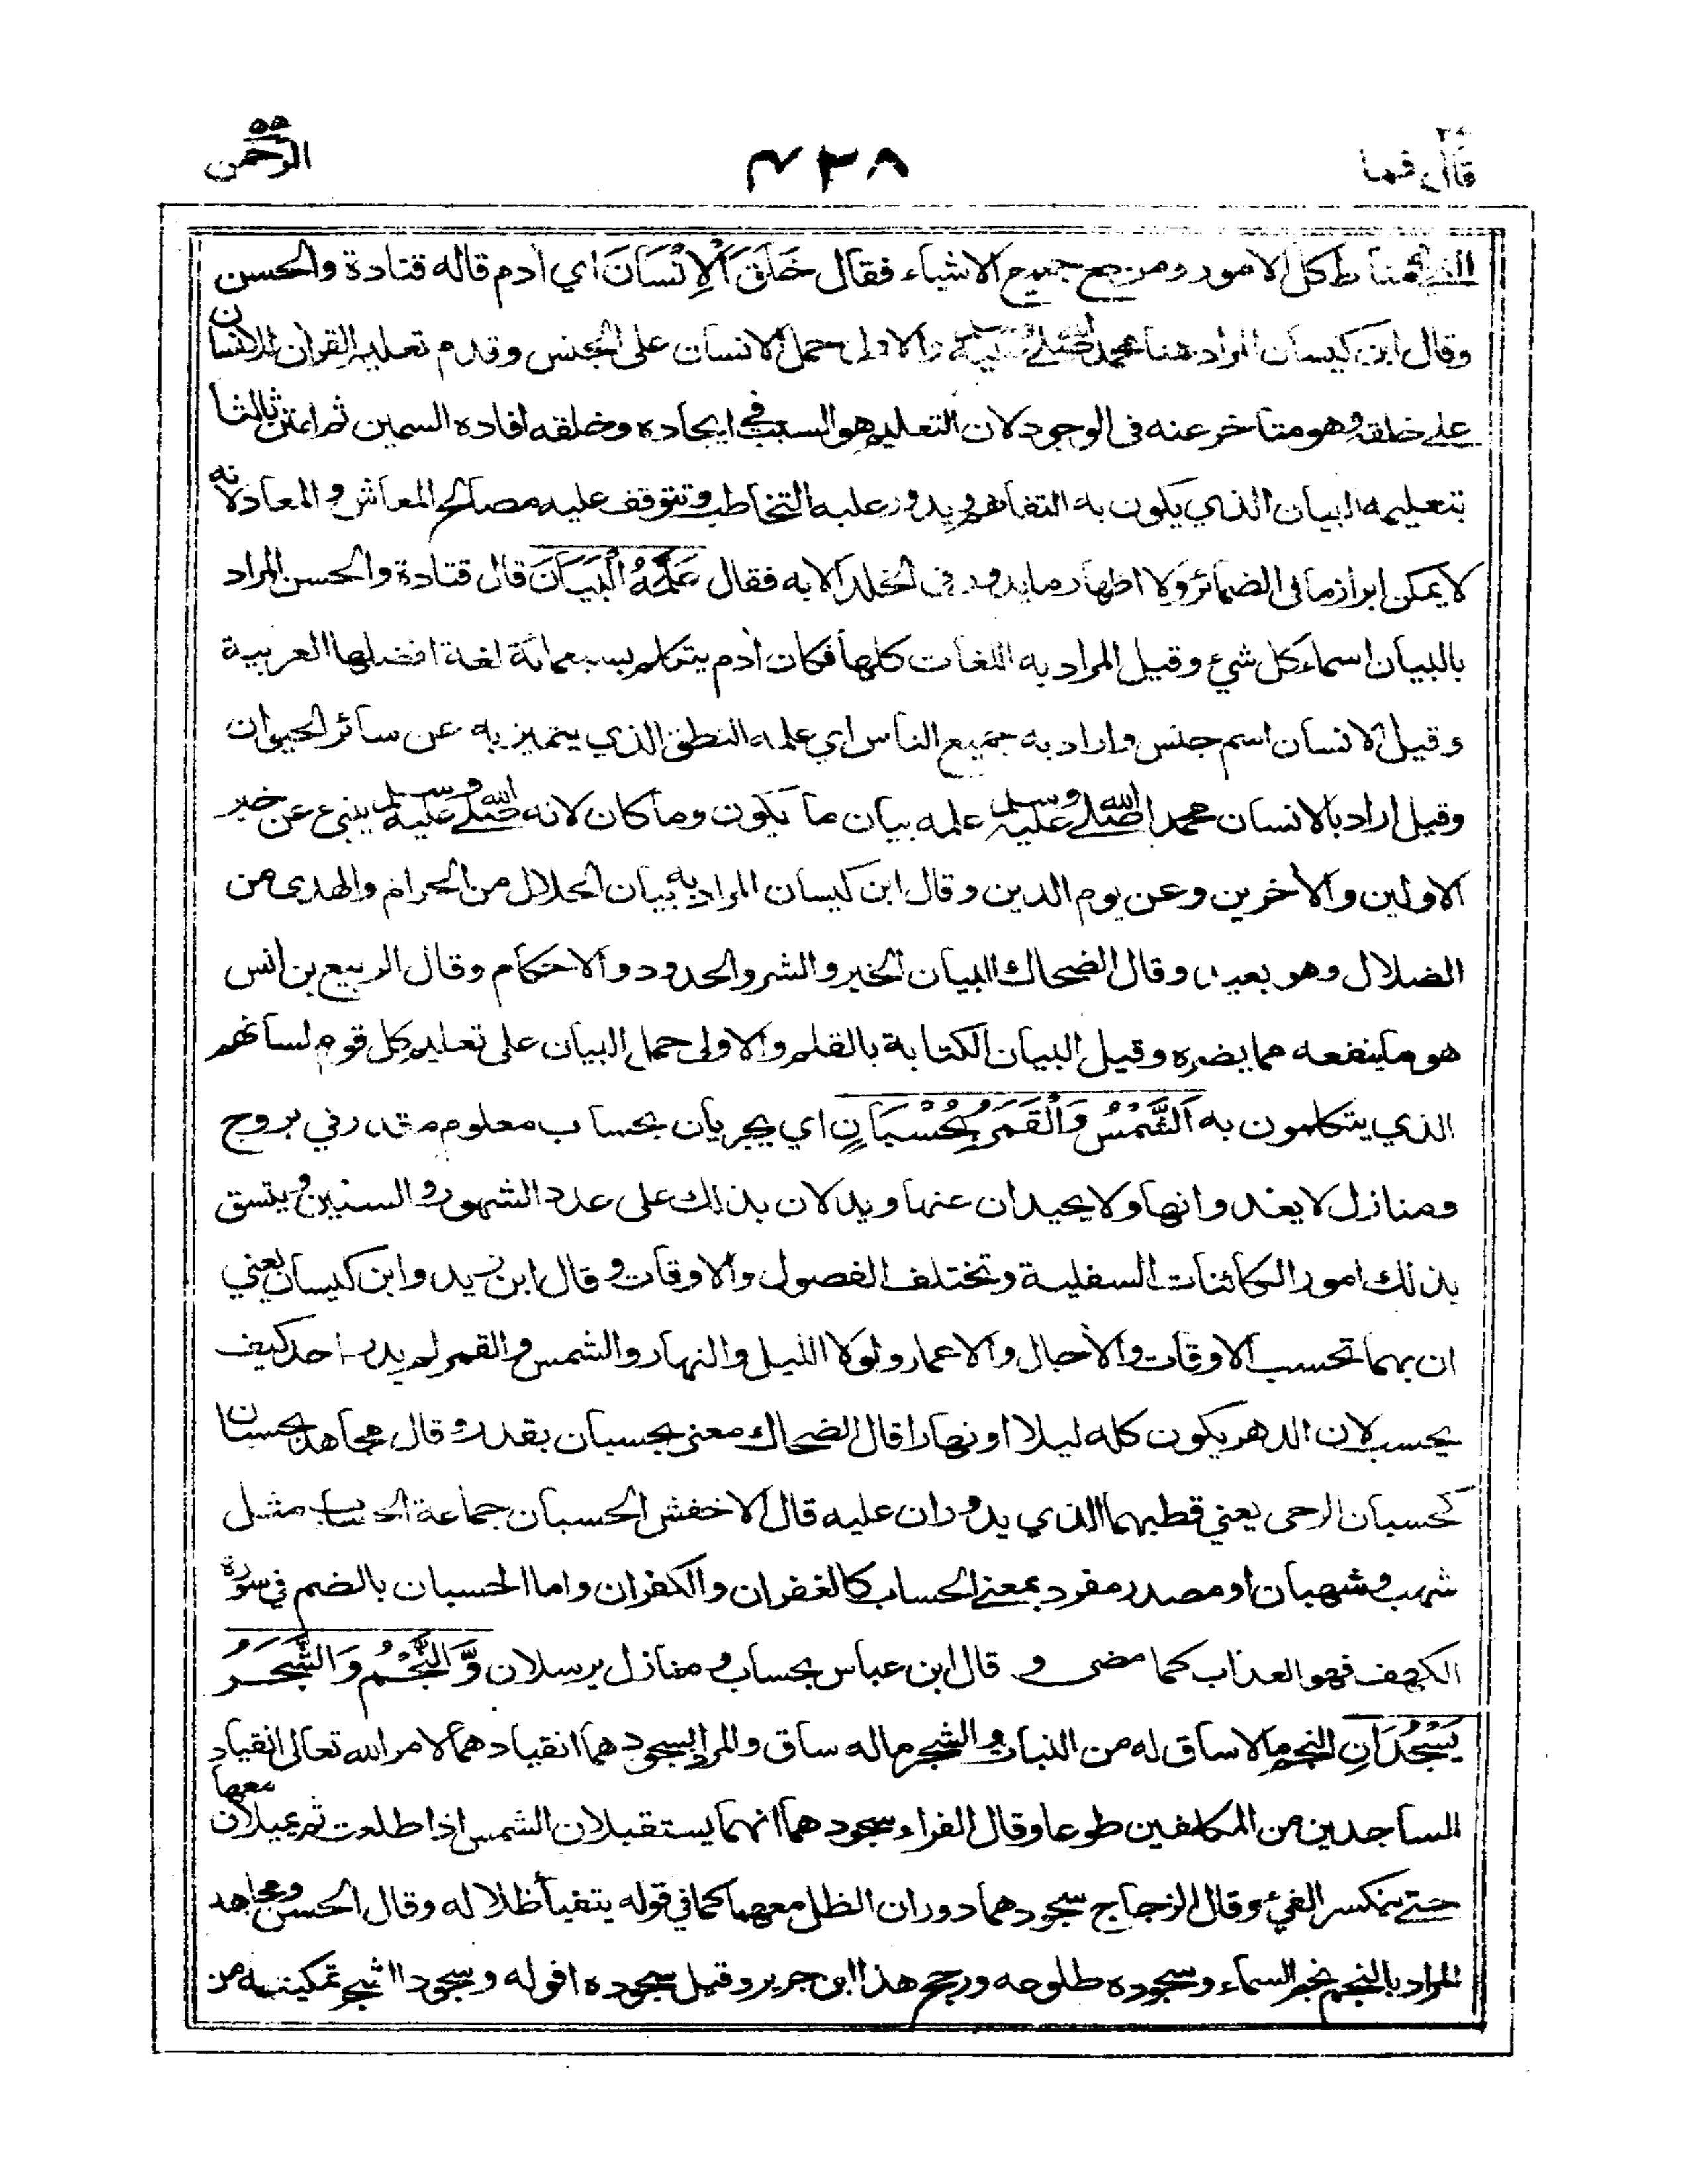 قال فما ٢٧
٤٣٨
الرحمن ٥٥
مناط كل الامور ومرجع جميع الاشياء فقال خَلَقَ الْاِنْسَانَ اي أدم قاله قتادة والحسن
وقال ابن كيسان المراد هنا محمد صلى الله عليه وسلم والاولى حمل الانسان على الجنس وقدم تعليم القرأن للانسان
على خلقه وهو متاخر عنه فى الوجود لان التعليم هو السبب في ايجاده وخلقه افاده السمين ثم امتن ثالثا
بتعليمه البيان الذي يكون به التفاهم ويدور عليه التخاطب وتتوقف عليه مصالح المعاش والمعاد لانه
لا يمكن ابراز ما فى الضمائر ولا اظهار ما يدور فى الخلد الا به فقال عَلَّمَهُ الْبَيَانَ قال قتادة والحسن المراد
بالبيان اسماء كل شيء وقيل المراد به اللغات كلها فكان أدم يتكلم بسبعمائة لغة افضلها العربية
وقيل الانسان اسم جنس واراد به جميع الناس اي علمه النطق الذي يتميز به عن سائر الحيوان
وقيل اراد بالانسان محمدا صلى الله عليه وسلم علمه بيان ما يكون وما كان لانه صلى الله عليه وسلم ينبئ عن خبر
الاولين والأخرين وعن يوم الدين وقال ابن كيسان المراد به بيان الحلال من الحرام والهدى من
الضلال وهو بعيد وقال الضحاك البيان الخير والشر والحدود والاحكام وقال الربيع بن انس
هو ما ينفعه مما يضره وقيل البيان الكتابة بالقلم والاولى حمل البيان على تعليم كل قوم لسانهم
الذي يتكلمون به اَلشَّمْسُ وَالْقَمَرُ بِحُسْبَانٍ اي يجريان بحساب معلوم مقدر في بروج
ومنازل لا يعدوانها ولا يحيدان عنها ويدلان بذلك على عدد الشهور والسنين ويتسق
بذلك امور الكائنات السفلية وتختلف الفصول والاوقات وقال ابن زيد وابن كيسان يعني
ان بهما تحسب الاوقات والأجال والاعمار ولولا الليل والنهار والشمس والقمر لم يدر احد كيف
يحسب لان الدهر يكون كله ليلا او نهارا قال الضحاك معنى بحسبان بقدر وقال مجاهد بحسبان
كحسبان الرحى يعني قطبهما الذي يدوران عليه قال الاخفش الحسبان جماعة الحساب مثل
شهب وشهبان او مصدر مفرد بمعنى الحساب كالغفران والكفران واما الحسبان بالضم في سورة
الكهف فهو العذاب كما مضى و قال ابن عباس بحساب و منازل يرسلان وَّ النَّجْمُ وَ الشَّجَرُ
يَسْجُدَانِ النجم ما لا ساق له من النبات والشجر ما له ساق والمراد بسجودهما انقيادهما لامر الله تعالى انقياد
الساجدين من المكلفين طوعا وقال الفراء سجودهما انهما يستقبلان الشمس اذا طلعت ثم يميلان معها
حتى ينكسر الفيء وقال الزجاج سجودهما دوران الظل معهما كما في قوله يتفيأ ظلاله وقال الحسن ومجاهد
المراد بالنجم نجم السماء وسجوده طلوعه ورجح هذا ابن جرير وقيل سجوده افوله وسجود الشجر تمكينه من